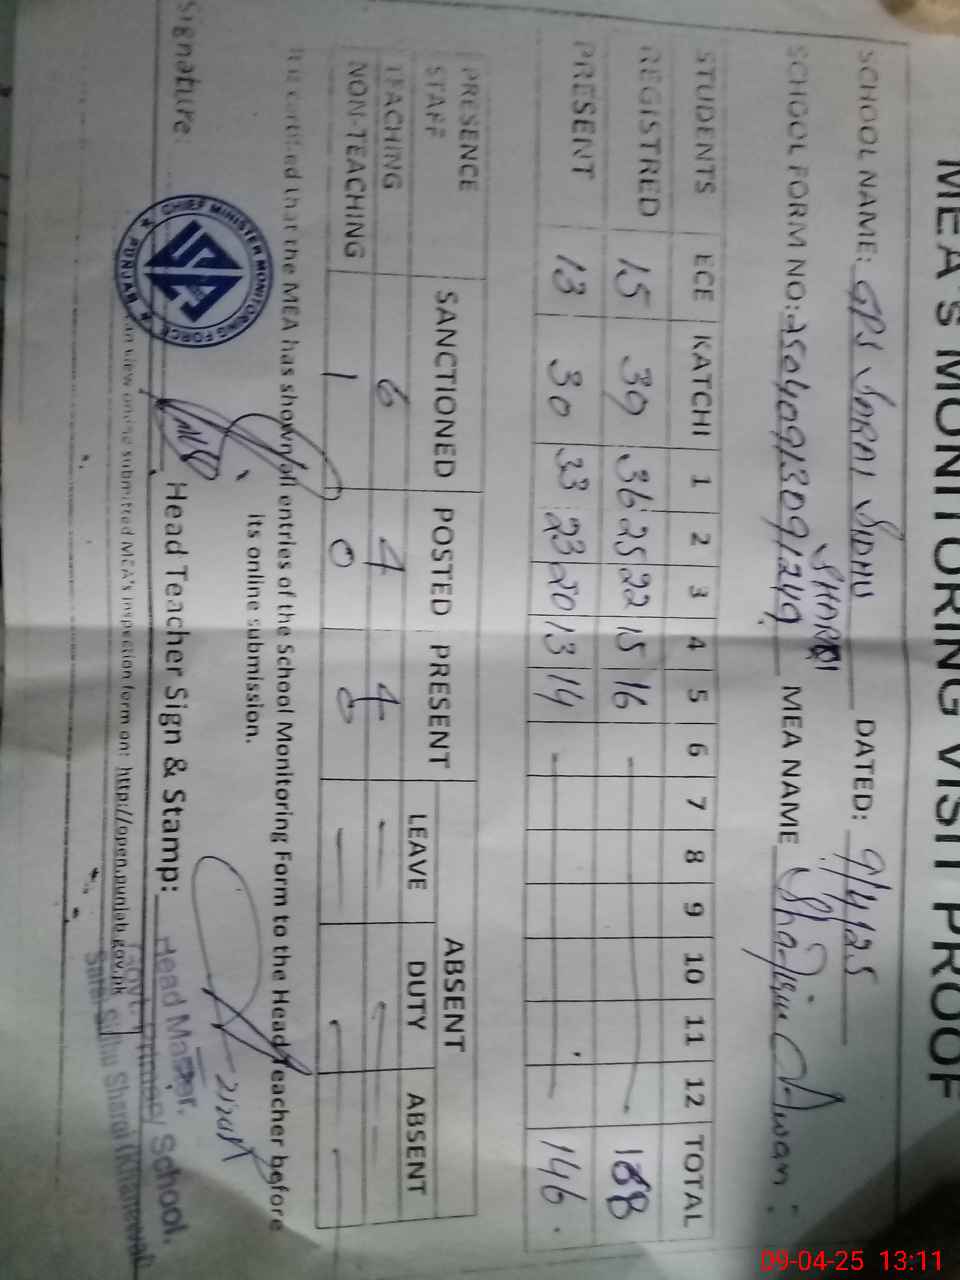 MEA'S MONITORING VISIT PROOF
SCHOOL NAME: GPS SORAI SIDHU SHARQI DATED: 9/4/25
SCHOOL FORM NO: 25040913091249 MEA NAME Awan
STUDENTS ECE KATCHI 1 2 3 4 5 6 7 8 9 10 11 12 TOTAL
REGISTRED 15 39 36 25 22 15 16 — 168
PRESENT 13 30 33 23 20 13 14 — 146
PRESENCE STAFF SANCTIONED POSTED PRESENT ABSENT
LEAVE DUTY ABSENT
TEACHING 6 4 4 — — —
NON-TEACHING 1 0 0 — — —
It is certified that the MEA has shown all entries of the School Monitoring Form to the Head Teacher before
its online submission.
Signature: Head Teacher Sign & Stamp:
CHIEF MINISTER MONITORING FORCE
PUNJAB
Head Master,
Govt. Primary School,
Sarai Sidhu Sharqi (Khanewal)
an view online submitted MEA's inspection form on: http://open.punjab.gov.pk
09-04-25 13:11